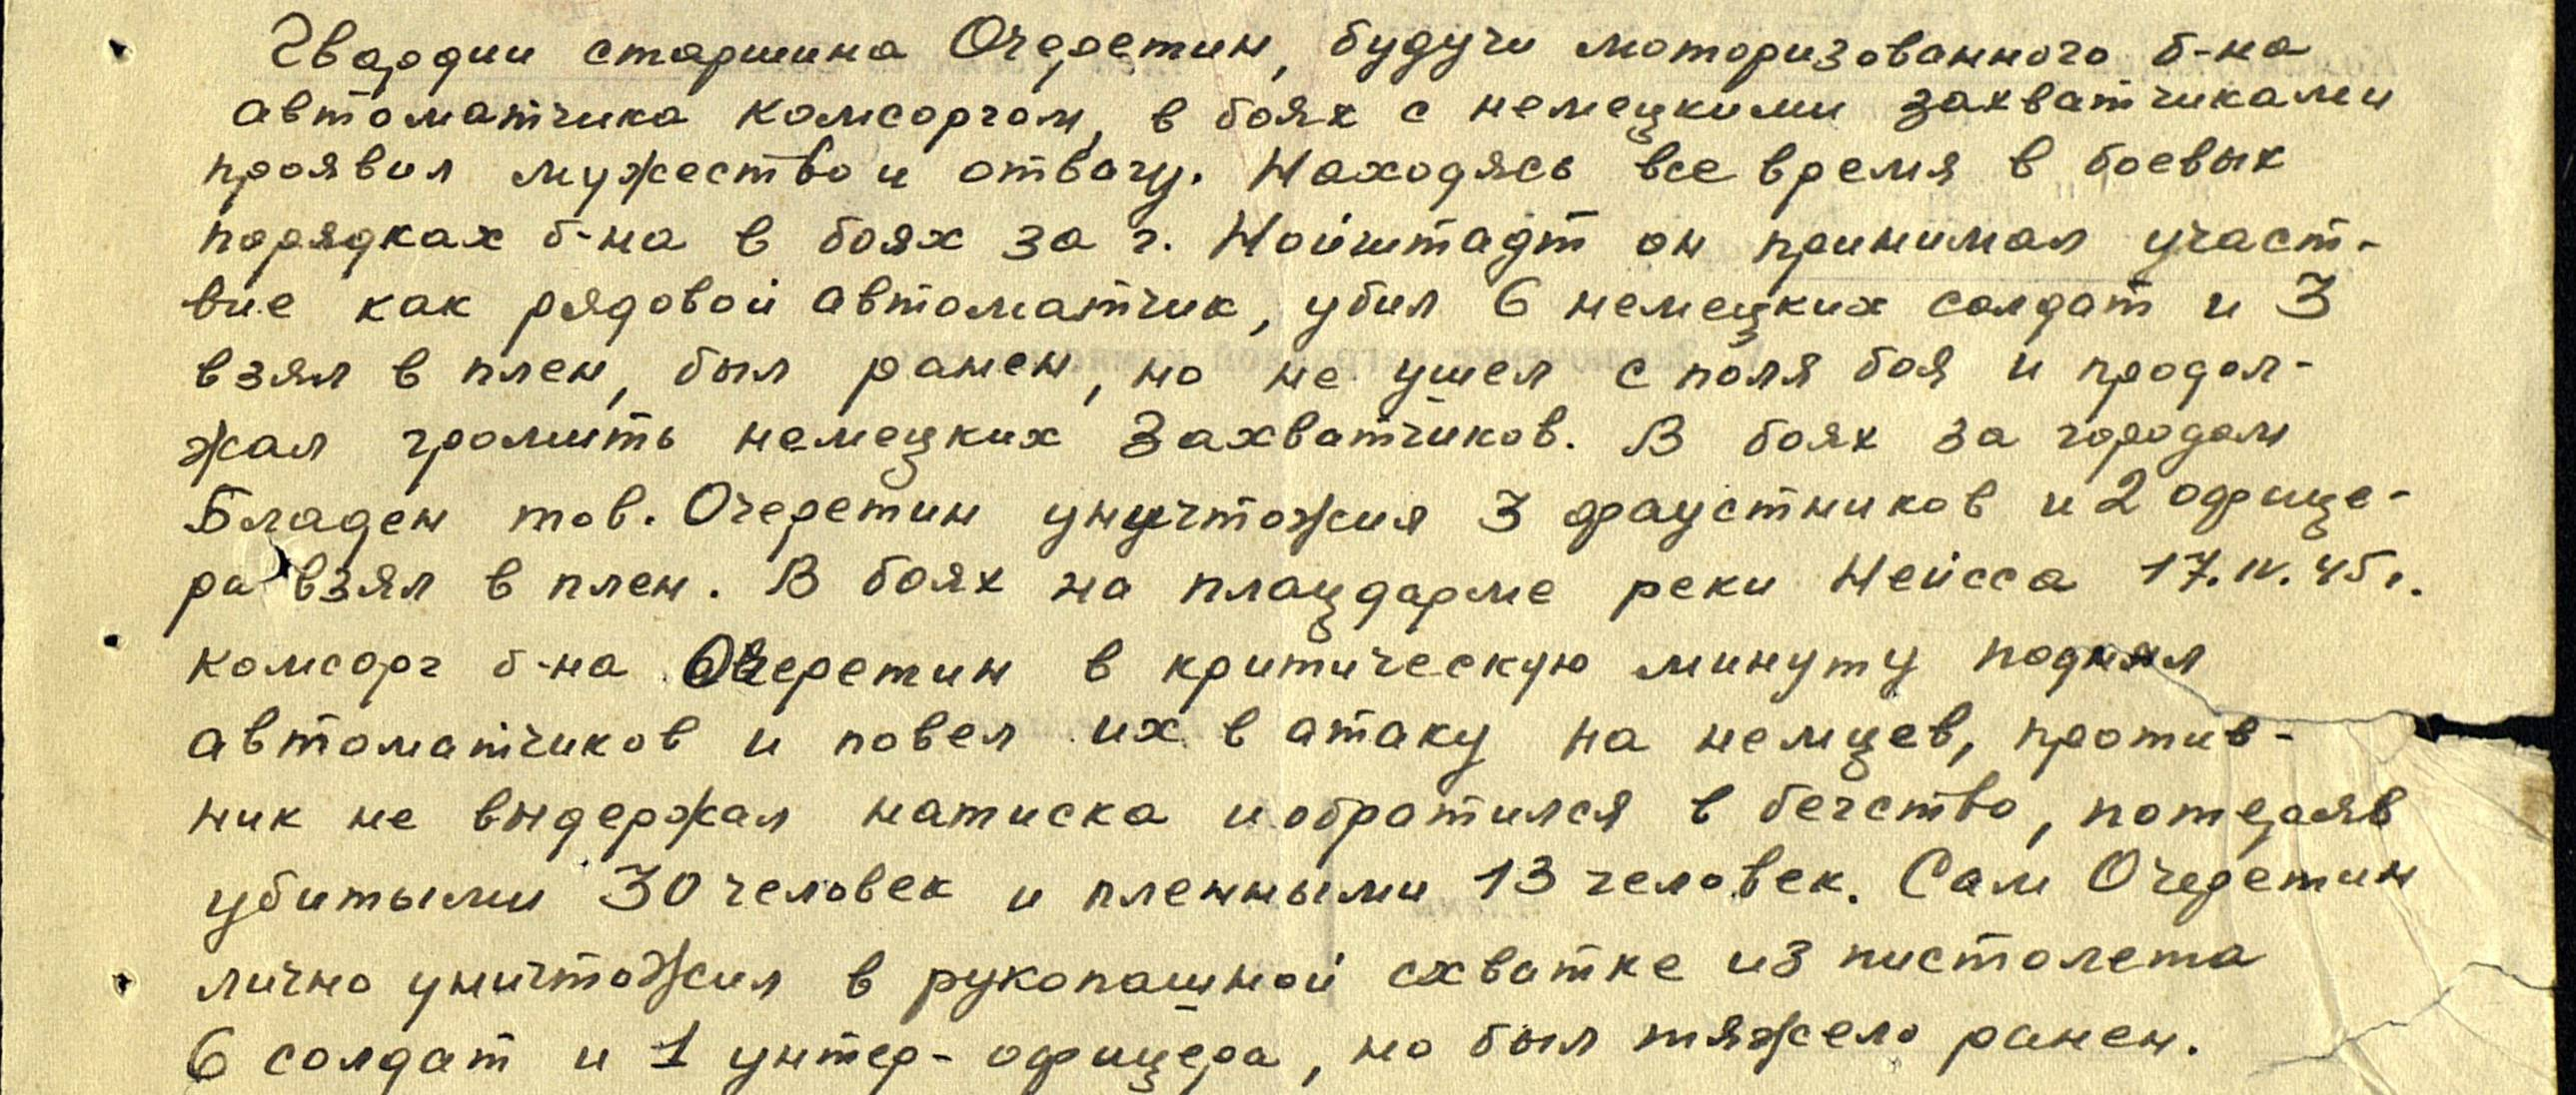 Гвардии старшина Очеретин, будучи моторизованного б-на
автоматчика комсоргом, в боях с немецкими захватчиками
проявил мужество и отвагу. Находясь все время в боевых
порядках б-на в боях за г. Нойштадт он принимал участ-
вие как рядовой автоматчик, убил 6 немецких солдат и 3
взял в плен, был ранен, но не ушел с поля боя и продол-
жал громить немецких захватчиков. В боях за городом
Бладен тов. Очеретин уничтожил 3 фаустников и 2 офице-
ра взял в плен. В боях на плацдарме реки Нейсса 17.IV.45г.
комсорг б-на Очеретин в критическую минуту поднял
автоматчиков и повел их в атаку на немцев, против-
ник не выдержал натиска и обратился в бегство, потеряв
убитыми 30 человек и пленными 13 человек. Сам Очеретин
лично уничтожил в рукопашной схватке из пистолета
6 солдат и 1 унтер-офицера, но был тяжело ранен.